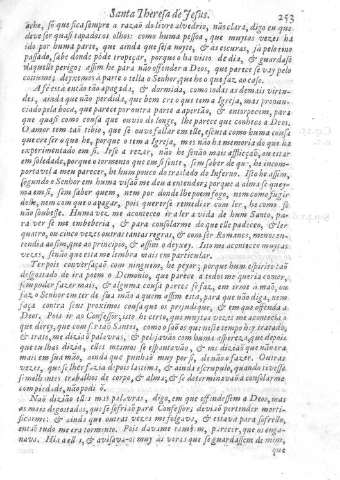 Santa Theresa de Jesus. 253
ache, só que fica sempre a razaõ do livre alvedrio, não clara, digo eu que
deve ser quasi tapados os olhos: como huma pessoa, que muytas vezes ha
ido por huma parte, que ainda que seja noyte, & ás escuras, já pelo tino
passado, sabe donde póde tropeçar, porque o ha visto de dia, & guarda se
daquelle perigo: assim he para não offender a Deos, que parece se vay pelo
costume; deyxemos à parte o tella o Senhor, que he o que faz ao caso.
A fé está entaõ taõ apagada, & dormida, como todas as demais virtu-
des, ainda que não perdida, que bem crè o que tem a Igreja, mas pronun-
ciado pela boca, que parece por outra parte a apertaõ, & entorpecem, para
que quasi como cousa que ouvio de longe, lhe parece que conhece a Deos.
O amor tem taõ tibio, que se ouve fallar em elle, escuta como huma cousa
que crè ser o que he, porque o tem a Igreja, mas não ha memoria do que ha
experimentado em si. Ir se a rezar, não he senão mais afflicçaõ, ou estar
em soledade, porque o tormento que em si sente, sem saber de que, he incom-
portavel a meu parecer, he hum pouco do traslado do Inferno. Isto he assim,
segundo o Senhor em huma visaõ me deu a entender; porque a alma se quey-
ma em si, sem saber quem, nem por donde lhe poem fogo, nem como fugir
delle, nem com que o apagar, pois quererse remediar com ler, he como se
não soubesse. Huma vez me aconteceo ir a ler a vida de hum Santo, pa-
ra ver se me embeberia, & para consolarme do que elle padeceo, & ler
quatro, ou cinco vezes outras tantas regras, & com ser Romance, menos en-
tendia ao fim, que ao principio, & assim o deyxey. Isto me aconteceo muytas
vezes, senão que esta me lembra mais em particular.
Ter pois conversaçaõ com ninguem, he peyor; porque hum espirito taõ
desgostado de ira poem o Demonio, que parece a todos me queria comer,
sem poder fazer mais, & alguma cousa parece se faz, em irme á maõ, ou
faz o Senhor em ter de sua maõ a quem assim está, para que não diga, nem
faça contra seus proximos cousa que os prejudique, & em que offenda a
Deos. Pois ir ao Confessor; isto he certo, que muytas vezes me acontecia o
que direy, que com serem taõ Santos, como o saõ os que neste tempo hey tratado,
& trato, me diziaõ palavras, & pelejavaõ com huma aspereza, que depois
que eu lhas dizia, elles mesmos se espantavaõ, & me diziaõ que não era
mais em sua maõ, ainda que punhaõ muy por si, de não o fazer. Outras
vezes, que se lhes fazia depois lastima, & ainda escrupulo, quando tivesse
semelhantes trabalhos de corpo, & alma, & se determinavaõ a consolarme
com piedade, não podiaõ.
Naõ diziaõ elles más palavras, digo, em que offendessem a Deos, mas
as mais desgostadas, que se sofriaõ para Confessor; deviaõ pertender morti-
ficarme: & ainda que outras vezes me folgava, & estava para sofrello,
então tudo me era tormento. Pois dava-me tambem, parecer, que os enga-
nava. Hia a elles, & avisava-os muy ás véras que se guardassem de mim,
que